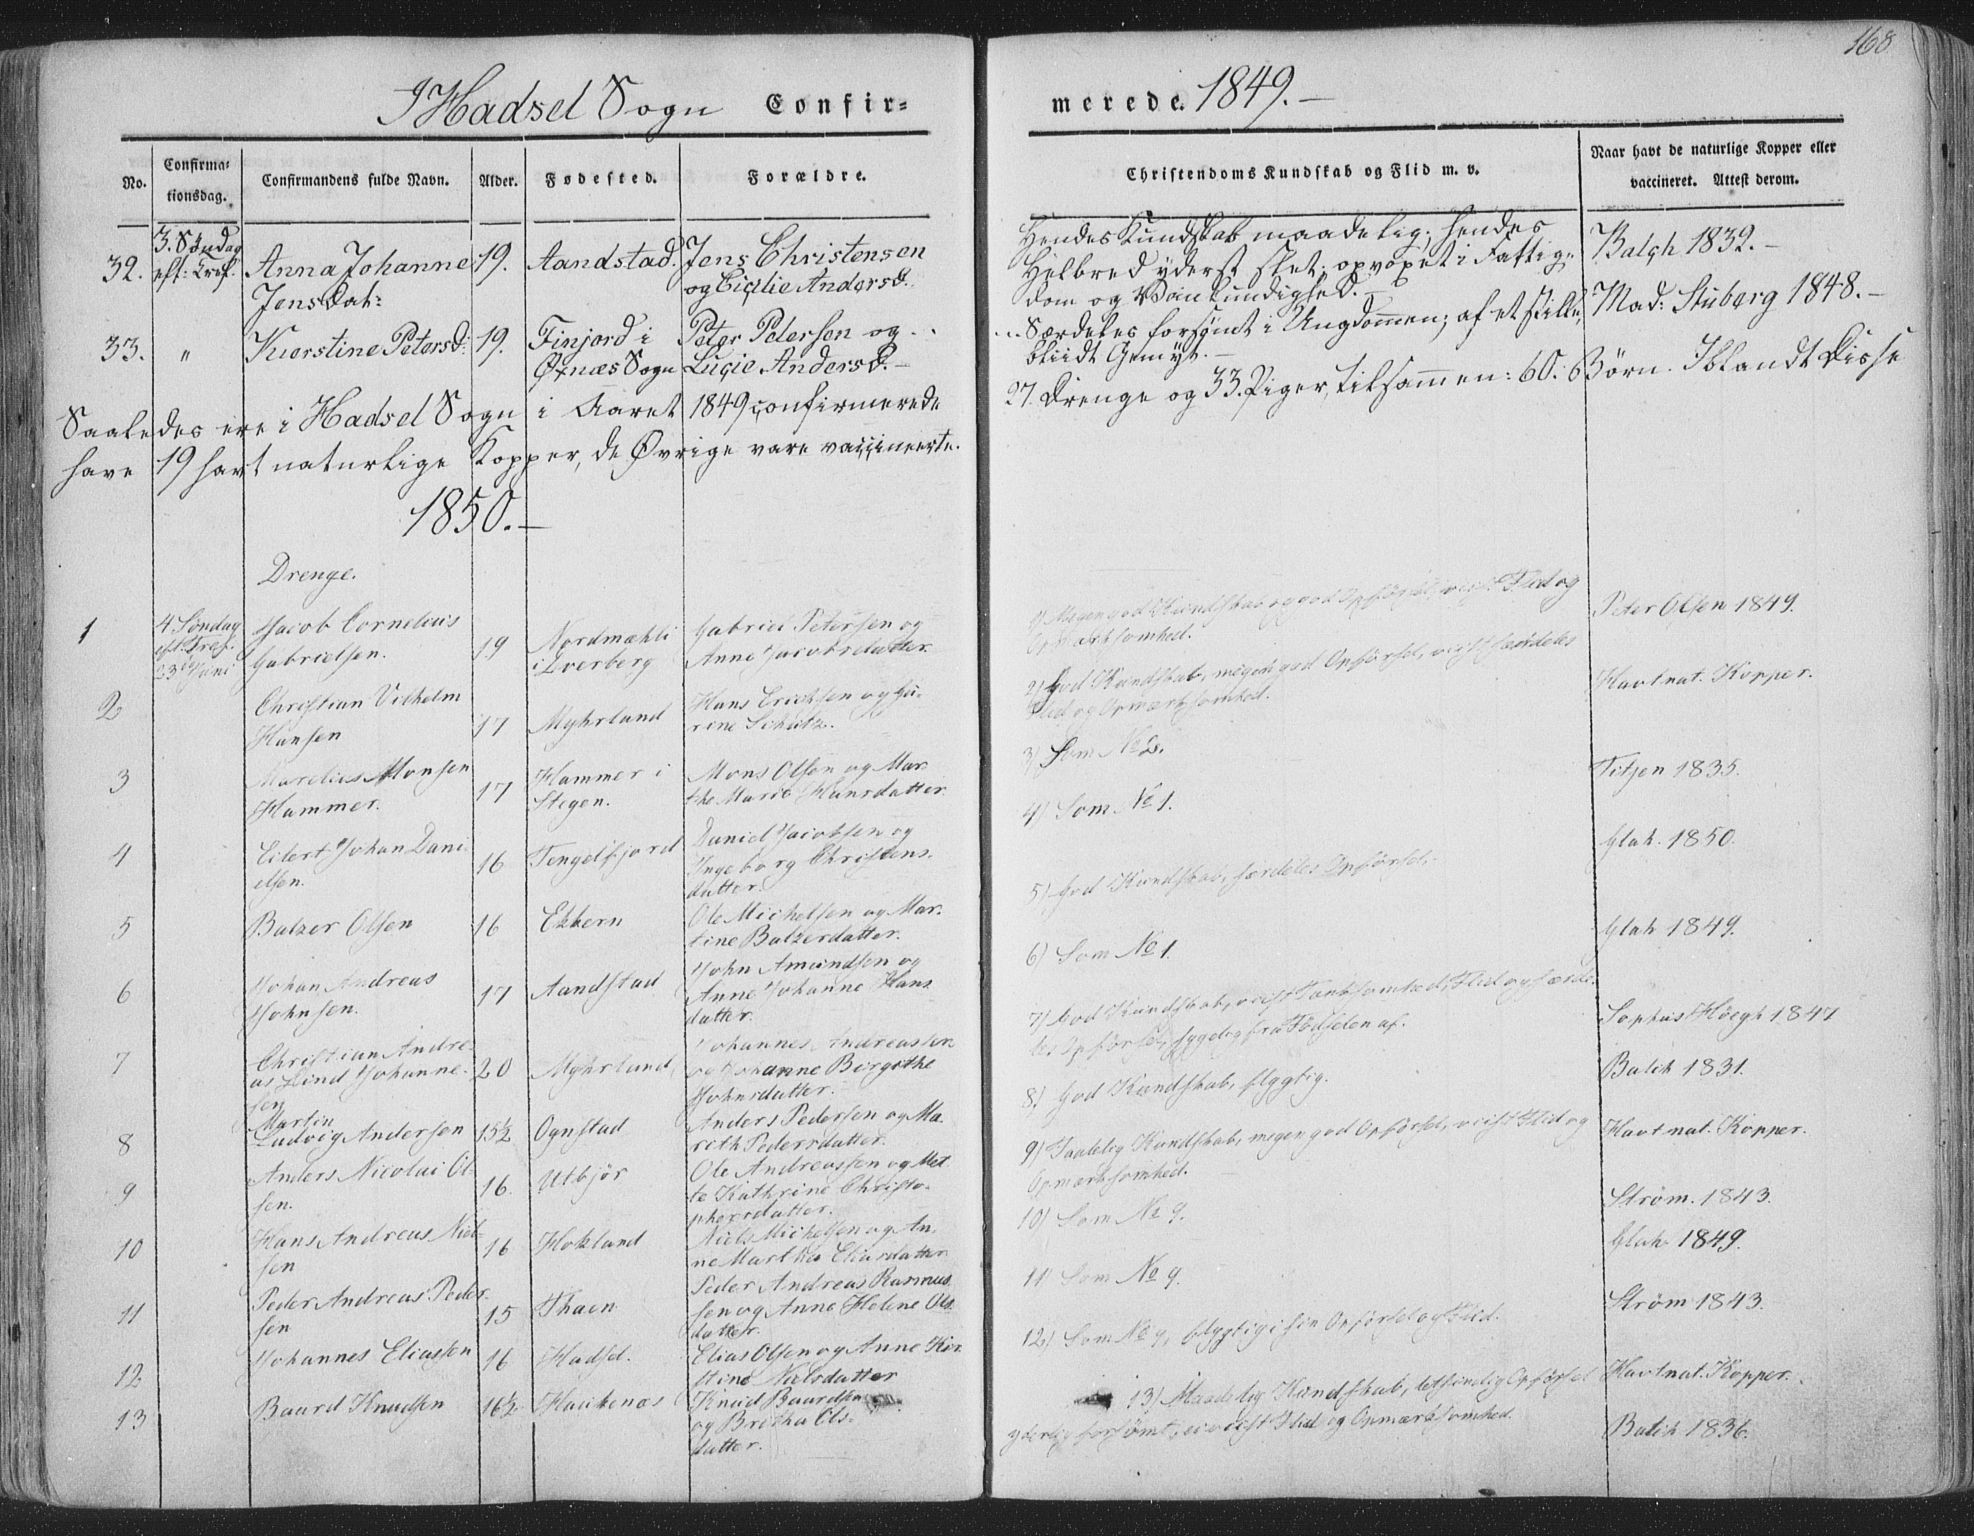 168
I Hadsel Sogn Confir=
merede. 1849.–
No.
Confirma=
tionsdag.
Confirmandens fulde Navn.
Alder.
Fødested.
Forældre.
Christendoms Kundskab og Flid m. v.
Naar havt de naturlige Kopper eller
vaccineret. Attest derom.
32.
3. Søndag
eft: Tref.
Anna Johanne
Jensdat:
19.
Aandstad.
Jens Christensen
og Cicilie Andersd.
Hendes Kundskab maadelig; hendes
Helbred yderst slet; opvoxet i Fattig-
dom og Vankundighed.–
Balch 1832.–
33.
"
Kierstine Petersd:
19.
Finjord i
Øxnæs Sogn
Peter Petersen og
Lucie Andersd.–
Særdeles forsømt i Ungdommen; af et stille,
bliidt Gemyt.–
Mad: Stuberg 1848.–
Saaledes ere i Hadsel Sogn i Aaret 1849 confirmerede
27. Drenge og 33. Piger, tilsamen: 60. Børn. Iblandt Disse
have 19 havt naturlige Kopper, de Øvrige vare vaccineerte.
1850.–
Drenge.
1
4 Søndag
eft. Tref.
23 Juni
Jacob Cornelius
Gabrielsen.
19
Nordmæhli
i Dverberg
Gabriel Petersen og
Anne Jacobsdatter.
1) Megen god Kundskab og god Opførsel, viist Flid og
Opmærksomhed.
Peter Olsen 1849.
2
Christian Vilhelm
Hansen
17
Myhrland
Hans Erichsen og
rine Schütz.
2) God Kundskab, megen god Opførsel, viist særdeles
Flid og Opmærksomhed.
Havt nat. Kopper.
3
Marelius Monsen
Hammer.
17
Hammer i
Stegen.
Mons Olsen og Mar-
the Marie Hansdatter.
3) Som No 2.
Titjen 1835.
4
Eilert Johan Dani-
elsen.
16
Tengelfjord
Daniel Jacobsen og
Ingeborg Christens-
datter.
4) Som No 1.
Glah. 1850.
5
Balzer Olsen
16
Ekkern
Ole Michelsen og Mar-
tine Balzerdatter.
5) God Kundskab, særdeles Opførsel.
Glah 1849.
6
Johan Andreas
Johnsen.
17
Aandstad
John Amundsen og
Anne Johanne Hans
datter.
6) Som No 1.
Sophus Høegh 1847
7
Christian Andre-
as Lind Johanne-
sen
20
Myhrland
Johannes Andreassen
og Johanne Birgithe
Johnsdatter.
7) God Kundskab, viist Tænksomhed, Flid og særde-
les Opførsel, sygelig fra Fødselen af.
Balch 1831.
8
Martin
Ludvig Andersen
15½
Ognstad
Anders Pedersen og Ma-
rith Pedersdatter.
8) God Kundskab, flygtig.
Havt nat. Kopper.
9
Anders Nicolai Ol-
sen.
16
Utbjør
Ole Andreassen og Met-
te Kathrine Christo-
phersdatter.
9) Taalelig Kundskab, megen god Opførsel, viist Flid og
Opmærksomhed.
Strøm. 1843.
10
Hans Andreas Niel-
sen
16
Hokland
Niels Michelsen og An-
ne Martha Eliasdatter
10) Som No 9.
Glah 1849.
11
Peder Andreas Peder-
sen
15
Thaen
Peder Andreas Rasmus
sen og Anne Helene Ols
datter.
11) Som No 9.
Strøm 1843.
12
Johannes Eliassen
16
Hadsel.
Elias Olsen og Anne Kir-
stine Nielsdatter
12) Som No 9, flygtig i sin Opførsel og Flid.
Havt nat. Kopper.
13
Baard Knudsen
16½
Haukenæs
Knud Baardsen
og Bretha Ols-
datter.
13) Maadelig Kundskab, letsindig Opførsel
yderlig forsømt, ei viist Flid og Opmærksomhed.
Balch 1836.